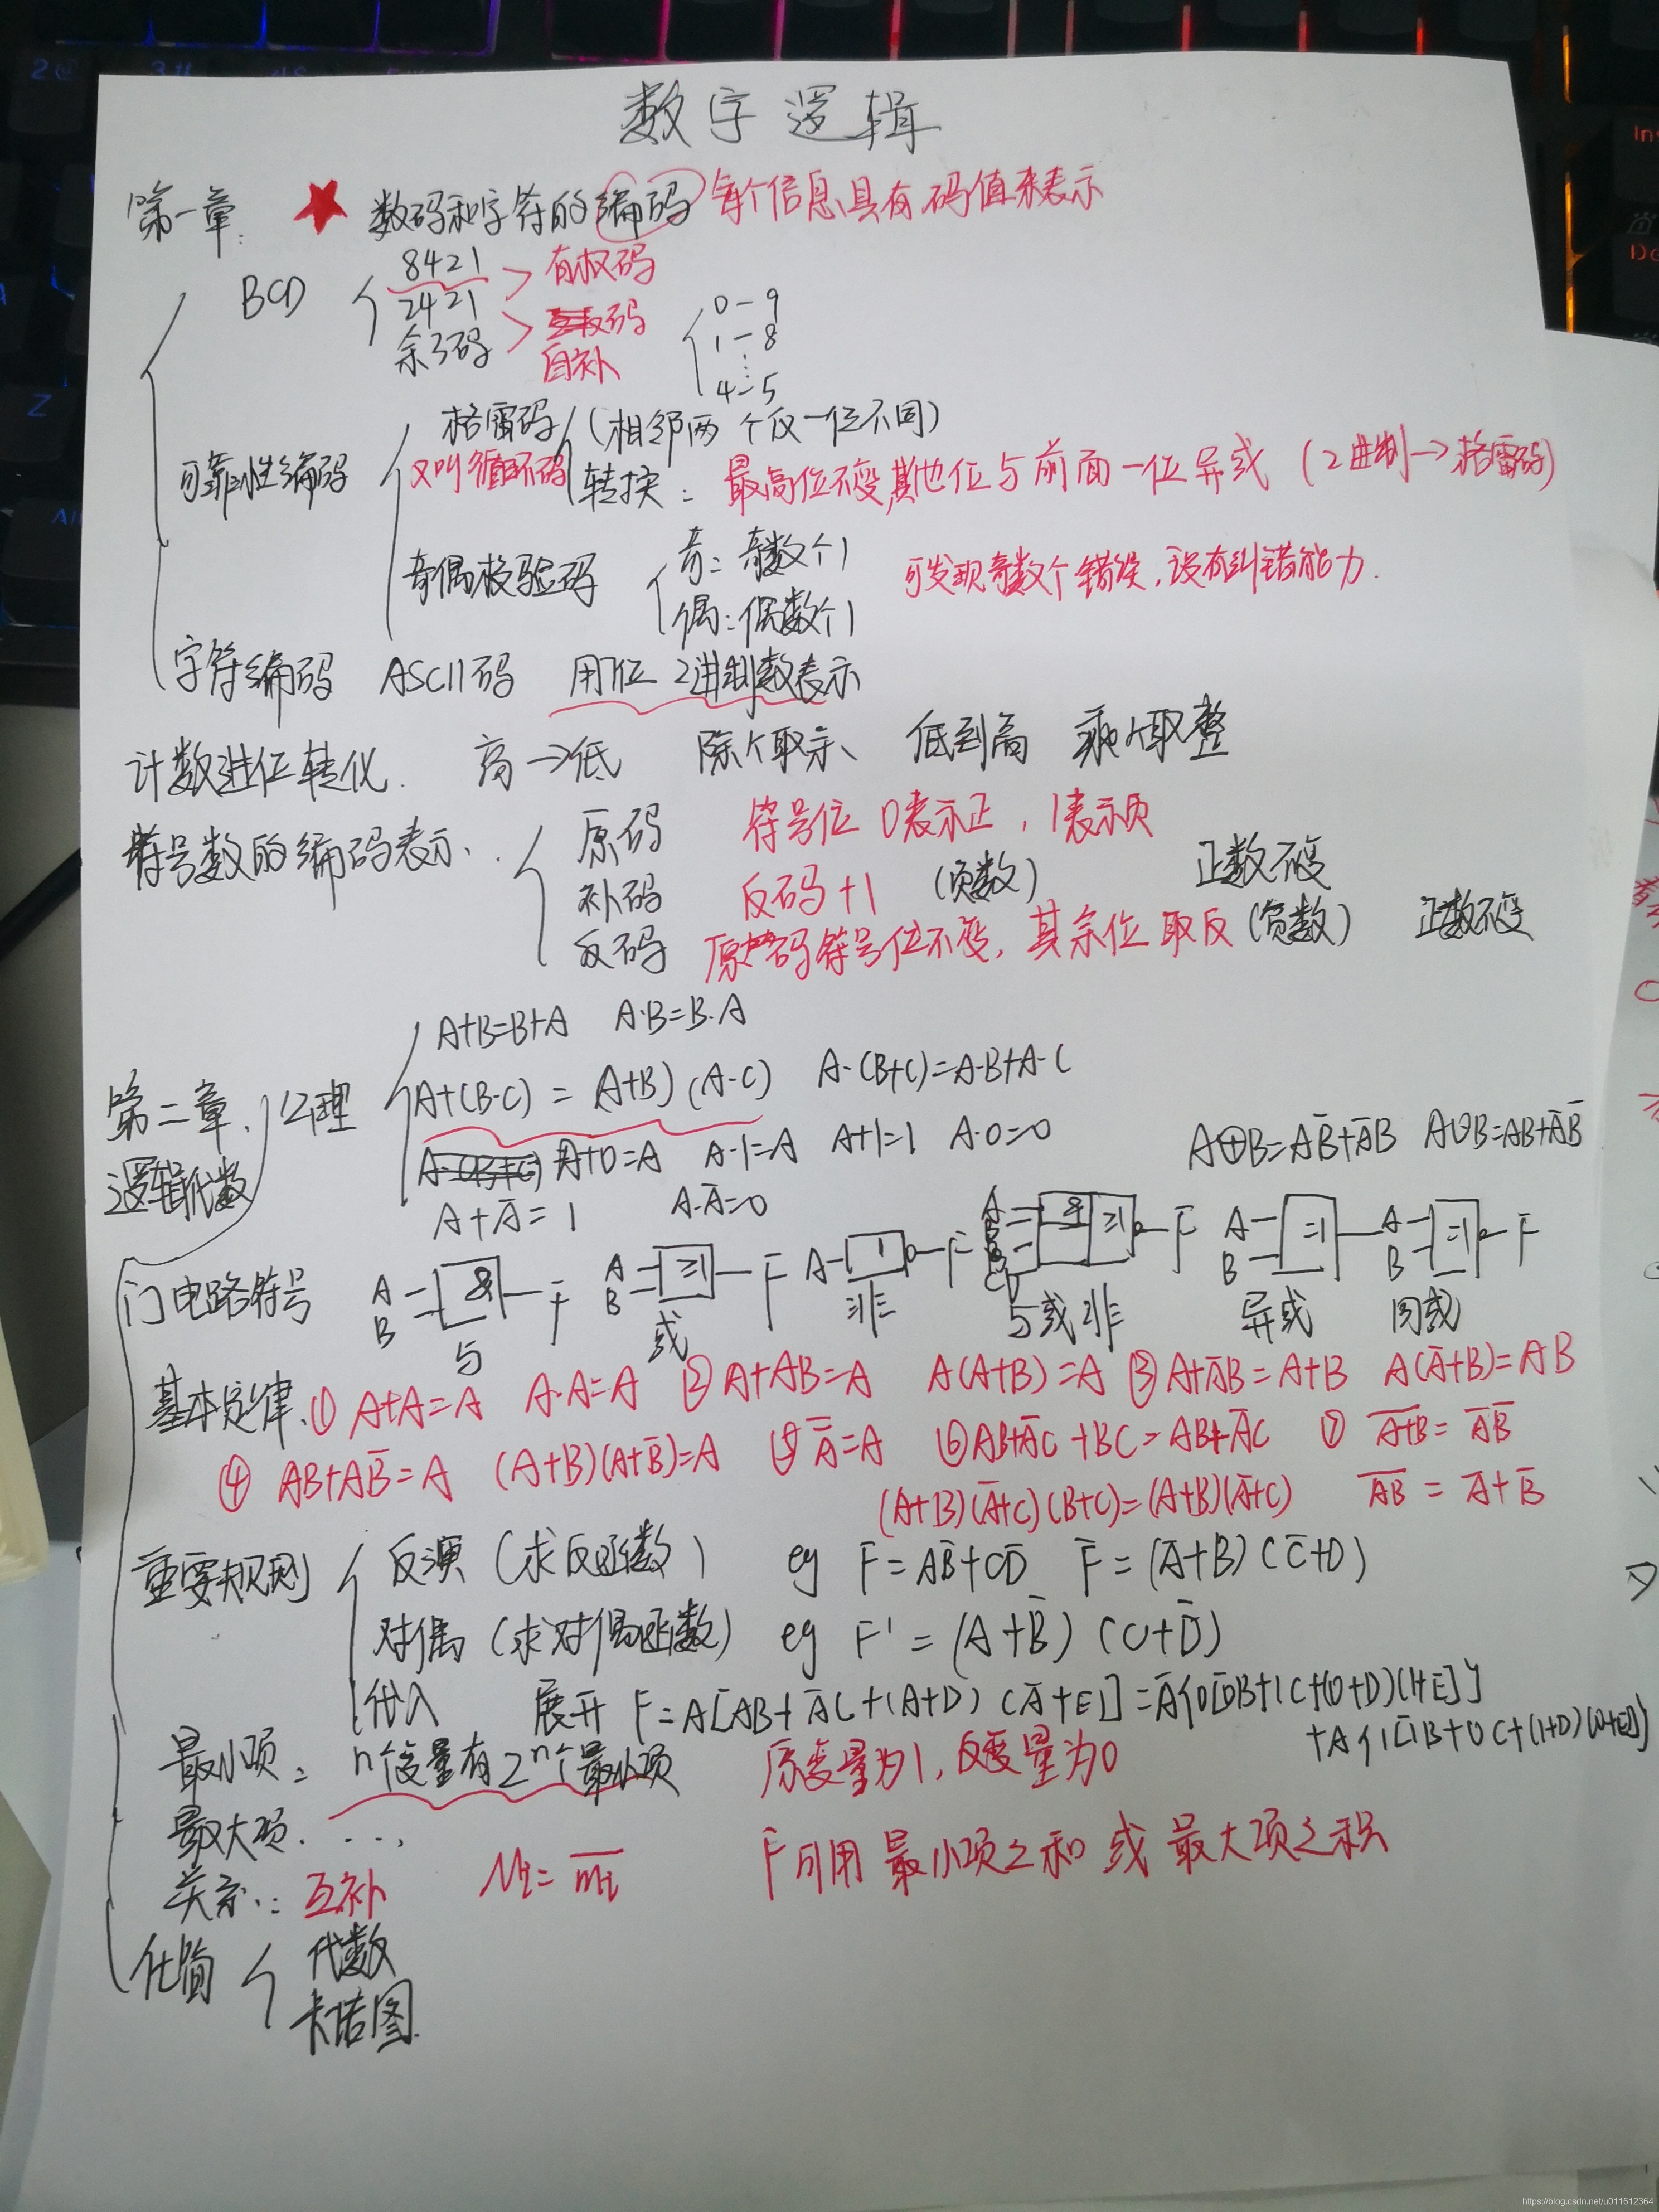 数字逻辑
第一章. ★ 数码和字符的编码 每个信息具有码值来表示
BCD 8421 > 有权码
2421
余3码 > 码 自补
0-9
1-8
⋮
4-5
可靠性编码 格雷码 (相邻两个仅一位不同)
又叫循环码 转换: 最高位不变,其他位与前面一位异或 (2进制→格雷码)
奇偶校验码 奇: 奇数个1 可发现奇数个错误,没有纠错能力.
偶: 偶数个1
字符编码 ASCII码 用7位 2进制数表示
计数进位转化. 高→低 除 取余、 低到高 乘 取整
符号数的编码表示. 原码 符号位 0表示正, 1表示负
补码 反码+1 (负数) 正数不变
反码 原码符号位不变, 其余位取反 (负数) 正数不变
A+B=B+A A·B=B·A
第二章、公理 A+(B·C) = (A+B)(A·C) A·(B+C)=A·B+A·C
逻辑代数 A+0=A A·1=A A+1=1 A·0=0 A⊕B=AB̅+A̅B A⊙B=AB+A̅B̅
A+A̅=1 A·A̅=0
门电路符号 A B & F 与 A B ≥1 F 或 A 1 F 非 A B & ≥1 F 与或非 A B =1 异或 A B =1 F 同或
基本定律、① A+A=A A·A=A ② A+AB=A A(A+B)=A ③ A+A̅B=A+B A(A̅+B)=AB
④ AB+AB̅=A (A+B)(A+B̅)=A ⑤ A̿=A ⑥ AB+A̅C+BC=AB+A̅C ⑦ \overline{A+B}=A̅B̅
(A+B)(A̅+C)(B+C)=(A+B)(A̅+C) \overline{AB}=A̅+B̅
重要规则 反演 (求反函数) eg F=AB̅+CD̅ F̅=(A̅+B)(C̅+D)
对偶 (求对偶函数) eg F'=(A+B̅)(C+D̅)
代入 展开 F=A[AB+A̅C+(A+D)(A̅+E)]=A̅{0[0B+1C+(0+D)(1+E)]}
+A{1[1B+0C+(1+D)(0+E)]}
最小项: n个变量有2ⁿ个最小项 原变量为1,反变量为0
最大项. ...,
关系: 互补 Mi=\overline{mi} F可用 最小项之和 或 最大项之积
化简 代数
卡诺图.
https://blog.csdn.net/u011612364